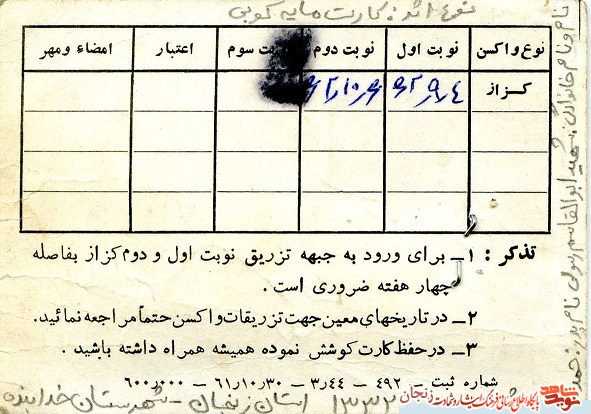 نوع اثر: کارت مایه کوبی
نوع واکسن نوبت اول نوبت دوم نوبت سوم اعتبار امضاء ومهر
کزاز ۶۲/۹/۴ ۶۲/۱۰/۶
تذکر : ۱ــ برای ورود به جبهه تزریق نوبت اول و دوم کزاز بفاصله
چهار هفته ضروری است .
۲ــ در تاریخهای معین جهت تزریقات واکسن حتماً مراجعه نمائید.
۳ــ در حفظ کارت کوشش نموده همیشه همراه داشته باشید .
شماره ثبت ــ ۴۹۲ ــ ۴۴ر۳ ــ ۳۰ر۱۰ر۶۱ ــ ۰۰۰ر۶۰۰
۱۳۳۲ استان زنجان - شهرستان خدابنده
نام و نام خانوادگی: شهید ابوالقاسم رسولی نام پدر:
نوید شاهد
پایگاه اطلاع رسانی فرهنگ ایثار و شهادت زنجان